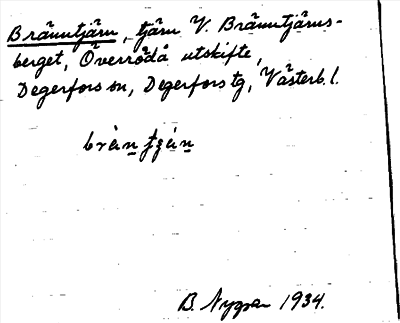 Bränntjärn, tjärn V. Bränntjärns-
berget, Överrödå utskifte,
Degerfors sn, Degerfors tg, Västerb. l.
B. Nygren 1934.